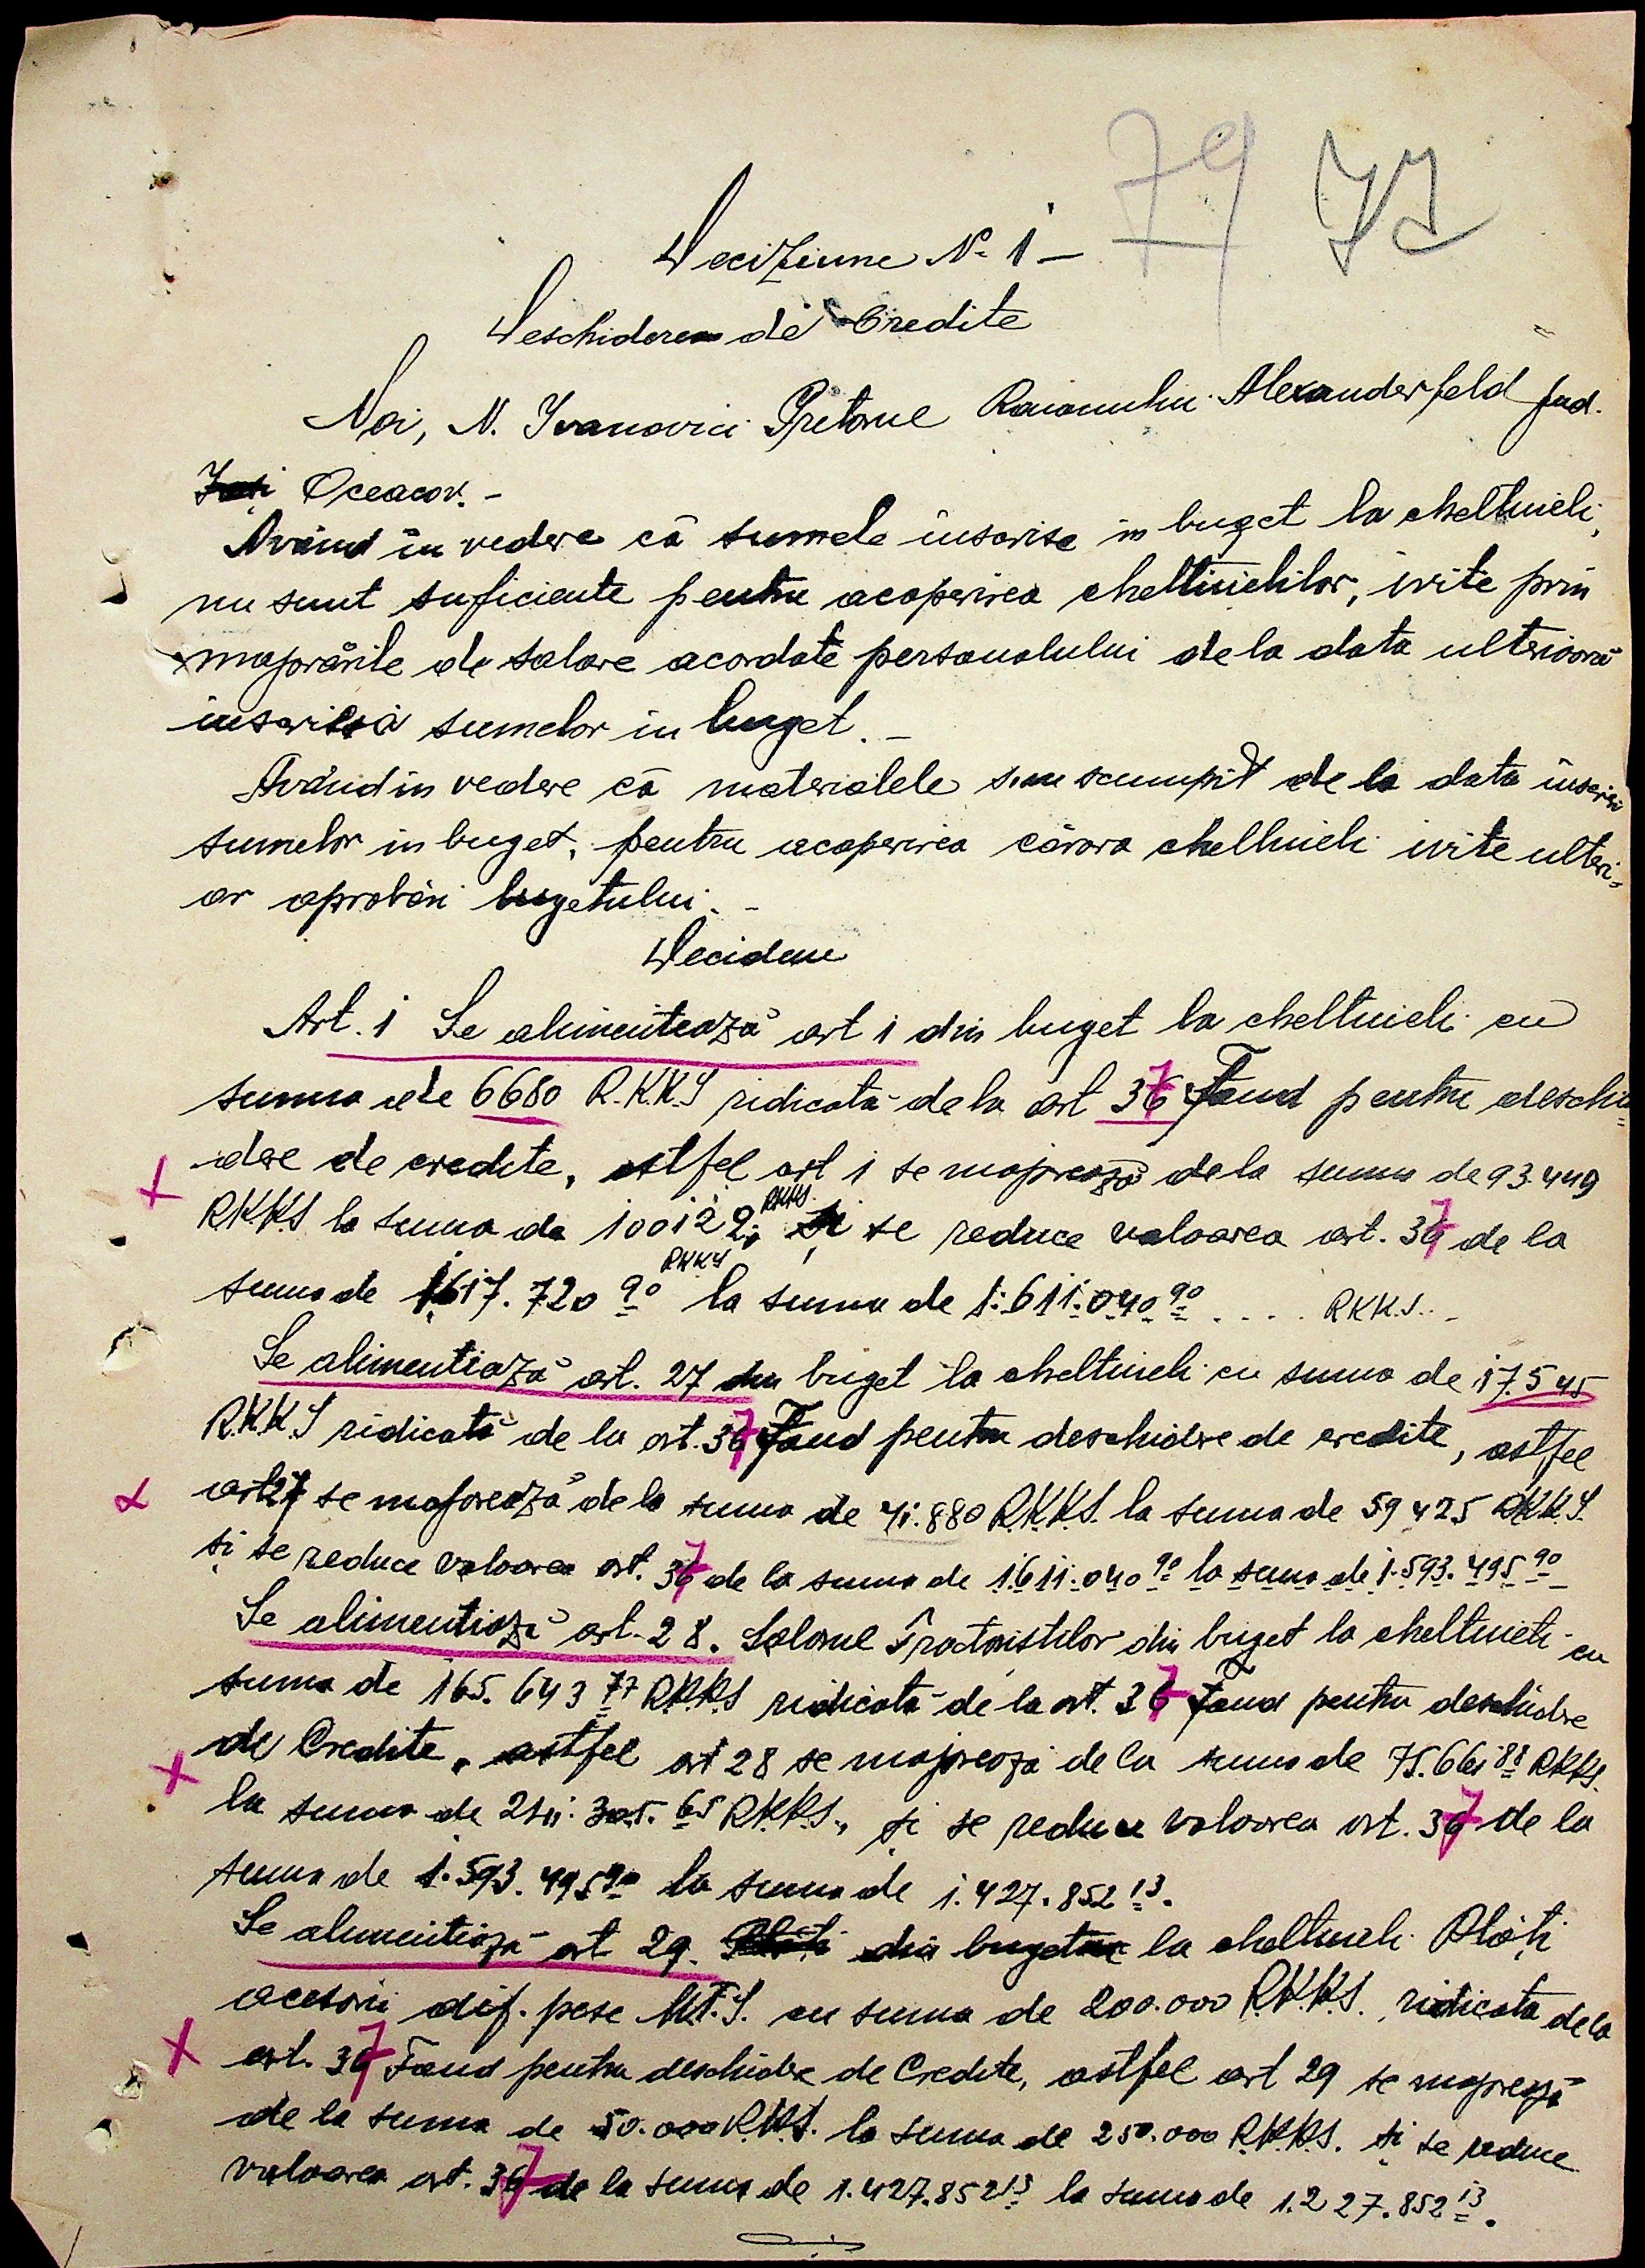 79 77
Deciziune No 1 –
Deschiderea de Credite
Noi, N. Ivanovici Pretorul Raionului Alexanderfeld Jud.
Oceacov. –
Având în vedere că sumele înscrise în buget la cheltuieli,
nu sunt suficiente pentru acoperirea cheltuielilor, ivite prin
majorările de salare acordate personalului de la data ulterioară
înscrisă sumelor în buget. –
Având în vedere că materialele s'au scumpit de la data înscrisi
sumelor in buget, pentru acoperirea cărora cheltuieli ivite ulteri-
or aprobări bugetului. –
Decidem
Art. 1 Se alimentează art 1 din buget la cheltuieli cu
suma de 6680 R.K.K.S ridicată de la art 37 Fond pentru deschi-
dere de credite, astfel art 1 se majorează de la suma de 93.449
RKKS la suma de 100122, RKKS. și se reduce valoarea art. 37 de la
suma de 1617.720 90 RKKS la suma de 1.611.040 90 .... RKK.S.. –
Se alimentiază art. 27 din buget la cheltuieli cu suma de 17.545
R.K.K.S ridicată de la art. 37 Fond pentru deschidere de credite, astfel
art 27 se majorează de la suma de 41.880 R.K.K.S. la suma de 59 425 R.K.K.S.
și se reduce valoarea art. 37 de la suma de 1.611.040 90 la suma de 1.593.495 90
Se alimentiază art. 28. Salarul Tractoristilor din buget la cheltuieli cu
suma de 165.643 77 R.K.K.S ridicată de la art. 37 Fond pentru deschidere
de Credite, astfel art 28 se majorează de la suma de 75.661 88 R.K.K.S.
la suma de 241.305. 65 R.K.K.S., și se reduce valoarea art. 37 de la
suma de 1.593.495 90 la suma de 1.427.852 13.
Se alimentiază art 29. din buget la cheltuieli Plăți
acesorii dif. pese M.T.S. cu suma de 200.000 R.K.K.S. ridicata de la
art. 37 Fond pentru deschidere de Credite, astfel art 29 se majorează
de la suma de 50.000 R.K.K.S. la suma de 250.000 R.K.K.S. și se reduce
valoarea art. 37 de la suma de 1.427.852 13 la suma de 1.227.852 13.